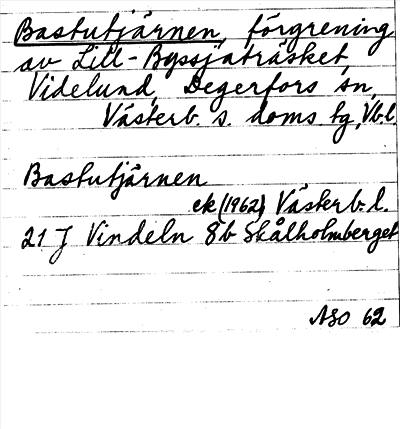 Bastutjärnen, förgrening
av Lill-Byssjaträsket,
Videlund, Degerfors sn,
Västerb. s. doms tg, Vb.l.
Bastutjärnen
ek (1962) Västerb. l.
21 J Vindeln 8b Skålholmberget
ASO 62